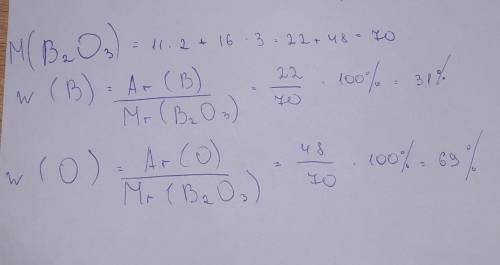 M(B₂O₃) = 11·2 + 16·3 = 22 + 48 = 70
w (B) = Ar (B) / Mr (B₂O₃) = 22 / 70 · 100% = 31%
w (O) = Ar (O) / Mr (B₂O₃) = 48 / 70 · 100% = 69%